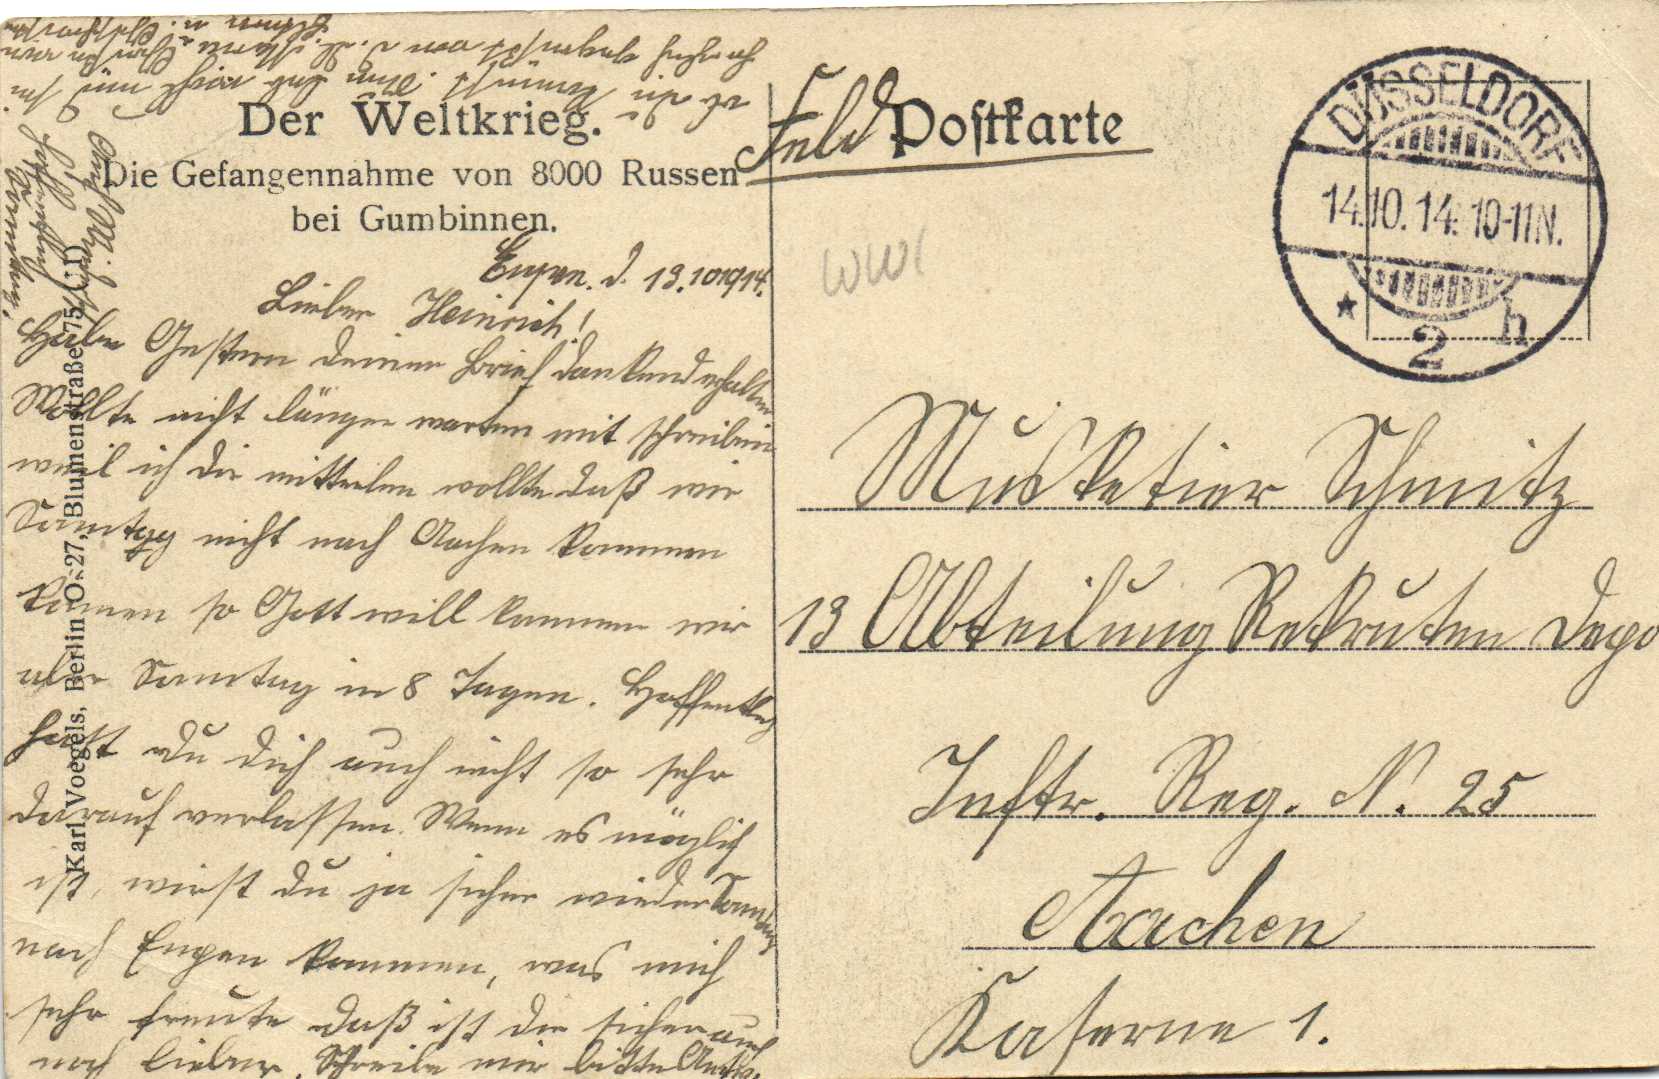 Der Weltkrieg.
Die Gefangennahme von 8000 Russen
bei Gumbinnen.
Eupen. d. 13.10.1914.
Lieber Heinrich!
Habe Gestern deinen Brief dankend erhalten
Wollte nicht länger warten mit schreiben
weil ich dir mitteilen wollte daß wir
Sonntag nicht nach Aachen kommen
können so Gott will kommen wir
aber Sonntag in 8 Tagen. Hoffentlich
hast du dich auch nicht so sehr
darauf verlassen. Wenn es möglich
ist, wirst du ja sicher wieder Sonntag
nach Eupen kommen, was mich
sehr freute daß ist dir sicher auch
noch lieber. Schreibe mir bitte
Karl Voegels, Berlin O. 27, Blumenstraße 75
Feld Postkarte
DÜSSELDORF
14.10.14. 10-11N.
* 2 h
WWI
Musketier Schmitz
13 Abteilung Rekruten Depo
Inftr. Reg. N. 25
Aachen
Kaserne 1.